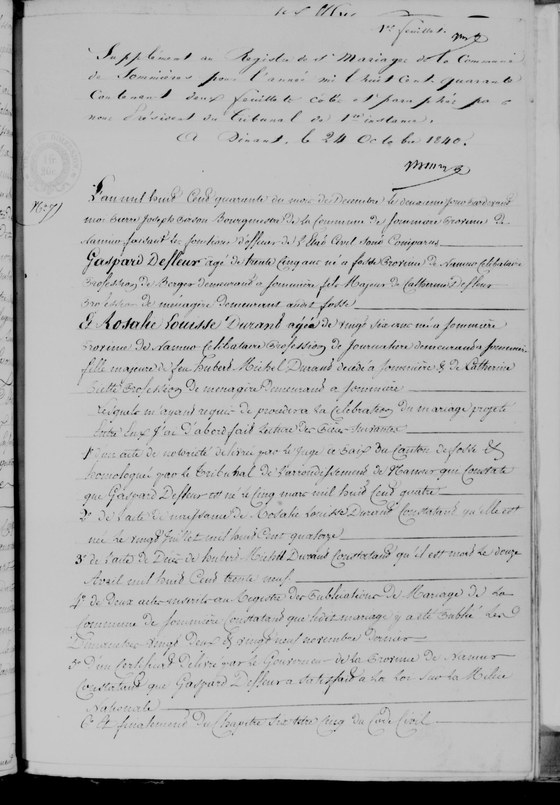 1er feuillet.
Supplément au Registre de st Mariages de la Commune
de Sommières pour l'année mil huit cent quarante
Contenant deux feuillets cotés et paraphés par
nous Président du Tribunal de 1ere instance.
A Dinant, le 24 Octobre 1840.
No 7
L'an mil huit Cend quarante du mois de Decembre le jour pardevant
moi Pierre Joseph Bourguemestre de la Commune de Sommiere Province de
Namur faisant les fonctions d'officier de l'Etat Civil sont Comparus
Gaspard Defleur agé de trente Cinq anc né a fosse Province de Namur Célibataire
Profession de Berger demeurand a Sommiere fils Majeur de Catherine Defleur
Profession de menagère demeurant audit fosse
Et Rosalie Louisse Durand agéa de vingt Six anc né a Sommière
Province de Namur Célibataire Profession de Journalière demeurand a Sommière
fille majeure de feu hubert Michel Durand decédé a Sommière & de Catherine
Profession de menagère Demeurand a Sommière
Lesquels m'ayant requis de procéder a la Célébration du mariage projeté
entre Eux J'ai D'abord fait lecture des Pièces Suivantes
1° D'un acte de notoriété délivré par le Juge de Paix du Canton de fosse &
homologué par le tribunal de l'arrondissement de Namur qui Constate
que Gaspard Defleur est né le Cinq mars mil huit Cend quatre
2° de l'acte de naissance de Rosalie Louisse Durand Constatand qu'elle est
née le vingt Juillet mil huit Cent quatorze
3° de l'acte de Décès de hubert Michel Durand Constatand qu'il est mort le douze
Avril mil huit Cens trente neuf
4° de Deux actes inscrits au Registre des Publications de Mariage de La
Commune de Sommière Constatand que ledit mariage y a été Publié Les
Dimanches vingt Deux & vingt neuf novembre Dernier
5° D'un Certificat délivré par le Gouverneur de la Province de Namur
Constatand que Gaspard Defleur a Satisfait a La Loi Sur La Milice
Nationale
6° Et finalement du Chapitre Six titre Cinq du Code Civil